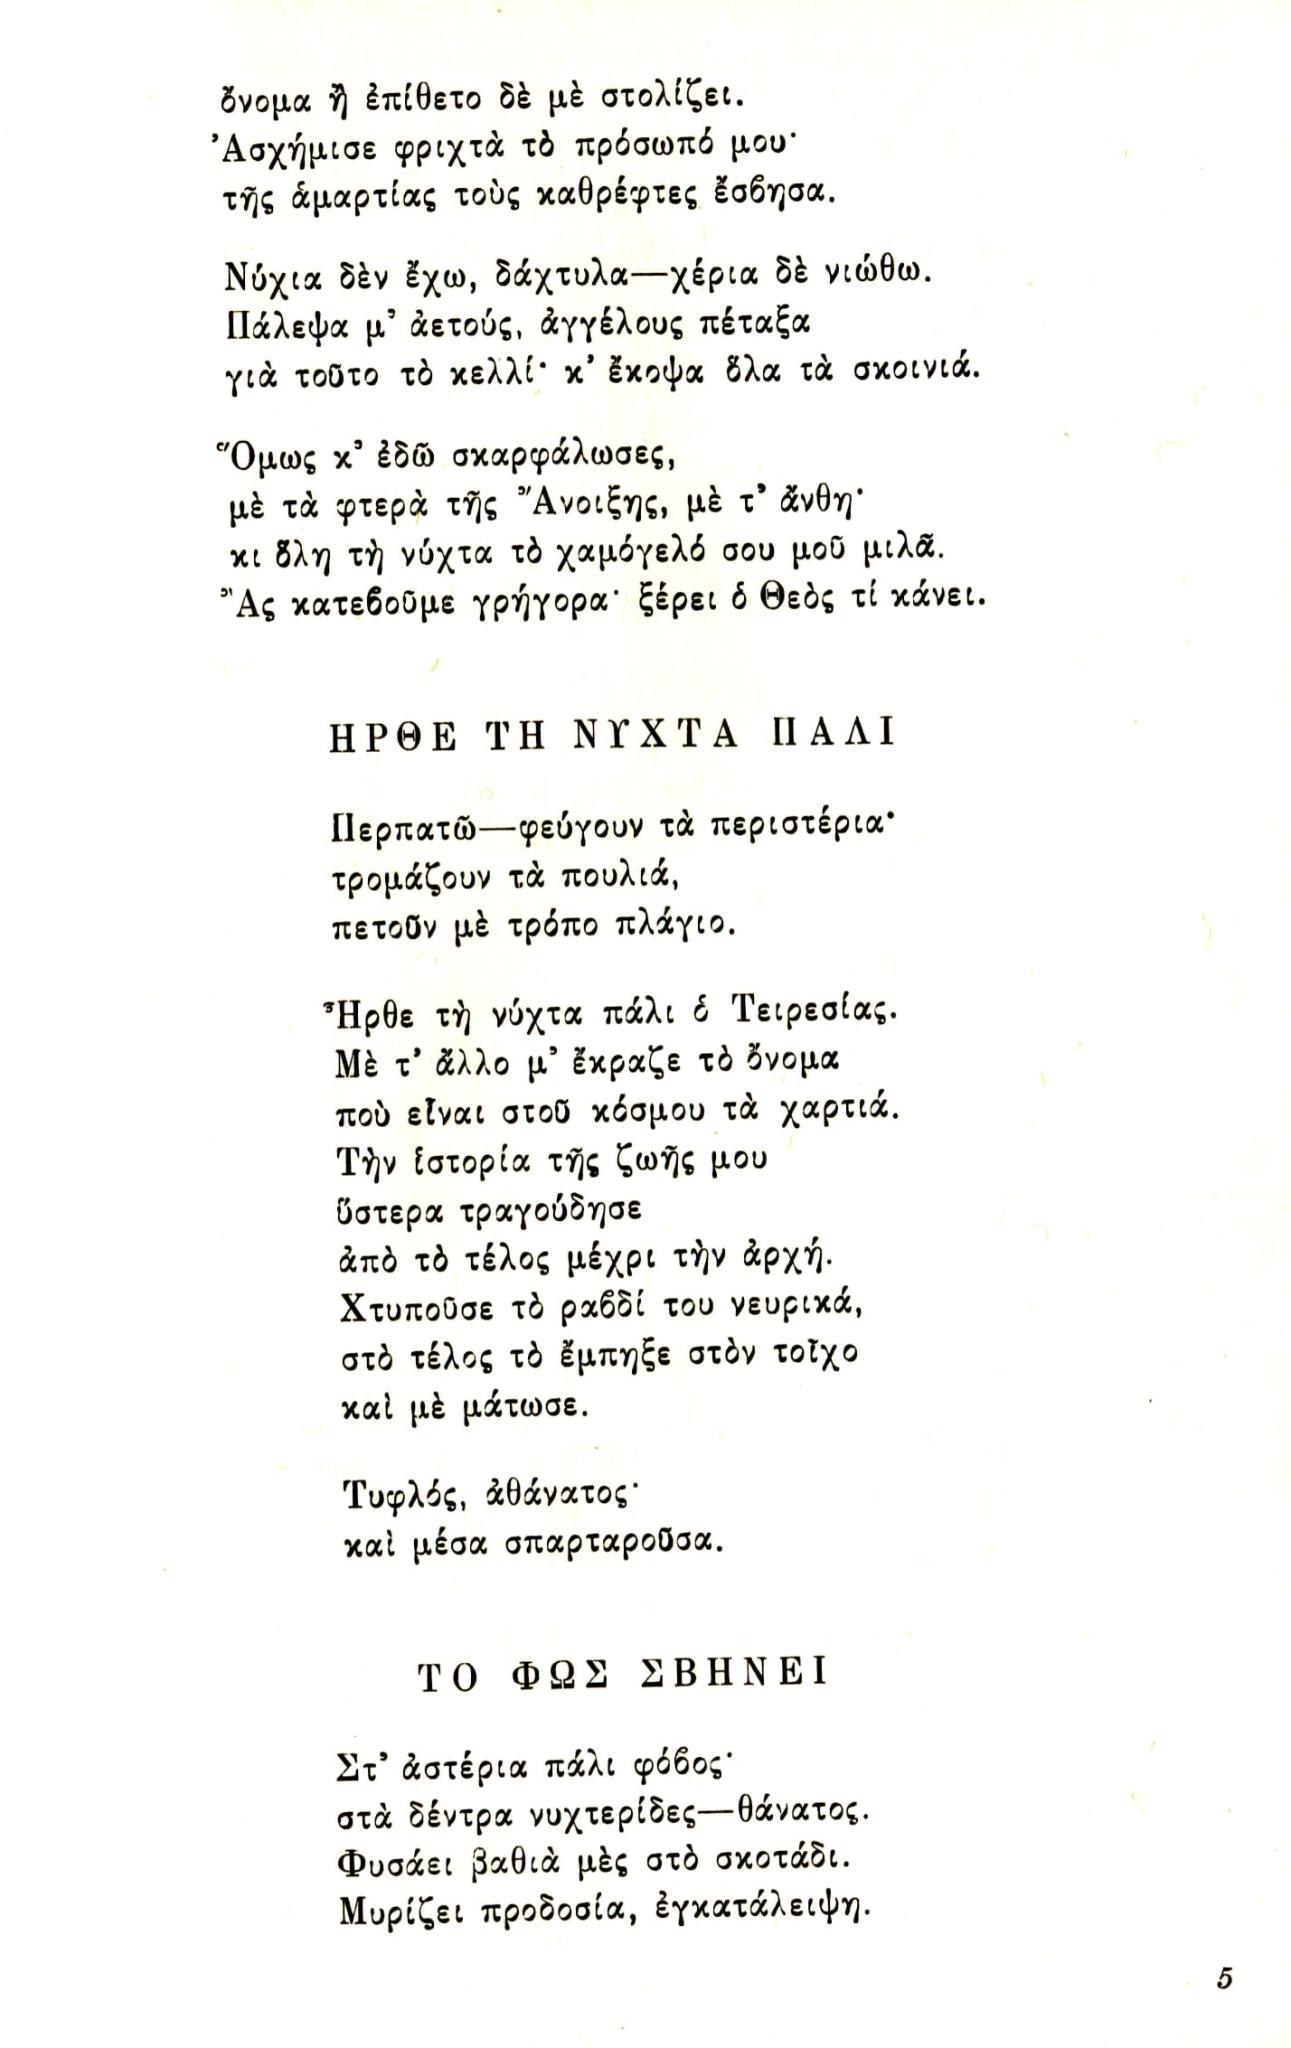 ὄνομα ἢ ἐπίθετο δὲ μὲ στολίζει.
Ἀσχήμισε φριχτὰ τὸ πρόσωπό μου·
τῆς ἁμαρτίας τοὺς καθρέφτες ἔσβησα.
Νύχια δὲν ἔχω, δάχτυλα—χέρια δὲ νιώθω.
Πάλεψα μ’ ἀετούς, ἀγγέλους πέταξα
γιὰ τοῦτο τὸ κελλί· κ’ ἔκοψα ὅλα τὰ σκοινιά.
Ὅμως κ’ ἐδῶ σκαρφάλωσες,
μὲ τὰ φτερὰ τῆς Ἄνοιξης, μὲ τ’ ἄνθη·
κι ὅλη τὴ νύχτα τὸ χαμόγελό σου μοῦ μιλᾶ.
Ἂς κατεβοῦμε γρήγορα· ξέρει ὁ Θεὸς τί κάνει.
ΗΡΘΕ ΤΗ ΝΥΧΤΑ ΠΑΛΙ
Περπατῶ—φεύγουν τὰ περιστέρια·
τρομάζουν τὰ πουλιά,
πετοῦν μὲ τρόπο πλάγιο.
Ἦρθε τὴ νύχτα πάλι ὁ Τειρεσίας.
Μὲ τ’ ἄλλο μ’ ἔκραζε τὸ ὄνομα
ποὺ εἶναι στοῦ κόσμου τὰ χαρτιά.
Τὴν ἱστορία τῆς ζωῆς μου
ὕστερα τραγούδησε
ἀπὸ τὸ τέλος μέχρι τὴν ἀρχή.
Χτυποῦσε τὸ ραβδί του νευρικά,
στὸ τέλος τὸ ἔμπηξε στὸν τοῖχο
καὶ μὲ μάτωσε.
Τυφλός, ἀθάνατος·
καὶ μέσα σπαρταροῦσα.
ΤΟ ΦΩΣ ΣΒΗΝΕΙ
Στ’ ἀστέρια πάλι φόβος·
στὰ δέντρα νυχτερίδες—θάνατος.
Φυσάει βαθιὰ μὲς στὸ σκοτάδι.
Μυρίζει προδοσία, ἐγκατάλειψη.
5